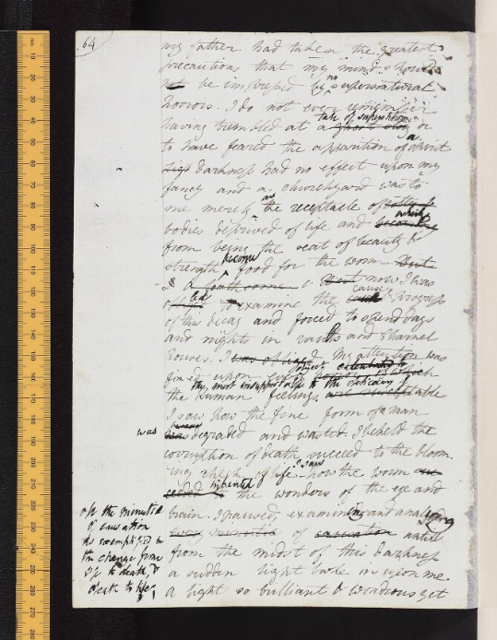 64
my father had taken the greatest
precaution that my mind should
not be impressed by no supernatural
horrors. I do not ever remember
tale of superstition
having trembled at a ghost story or
to have feared the apparition of a spirit
darkness had no effect upon my
fancy and a churchyard was to
me merely as the receptacle of
bodies deprived of life and which
from being the seat of beauty &
strength become food for the worm But
now I was
led to examine the cause & progress
of this decay and forced to spend days
and nights in vaults and charnel
houses. I my attention was
fixed upon object
the most insupportable to the delicacy of
the human feelings
I saw how the fine form of man
was degraded and wasted. I beheld the
corruption of death succeed to the bloom
ing cheek of life I saw how the worm
inherited the wonders of the eye and
brain. I paused, examining and analysing
all the minutiae
of causation
as exemplified in
the change from
life to death &
death to life
every minutiae of causation until
from the midst of this darkness
a sudden light broke in upon me.
a light so brilliant & wondrous yet